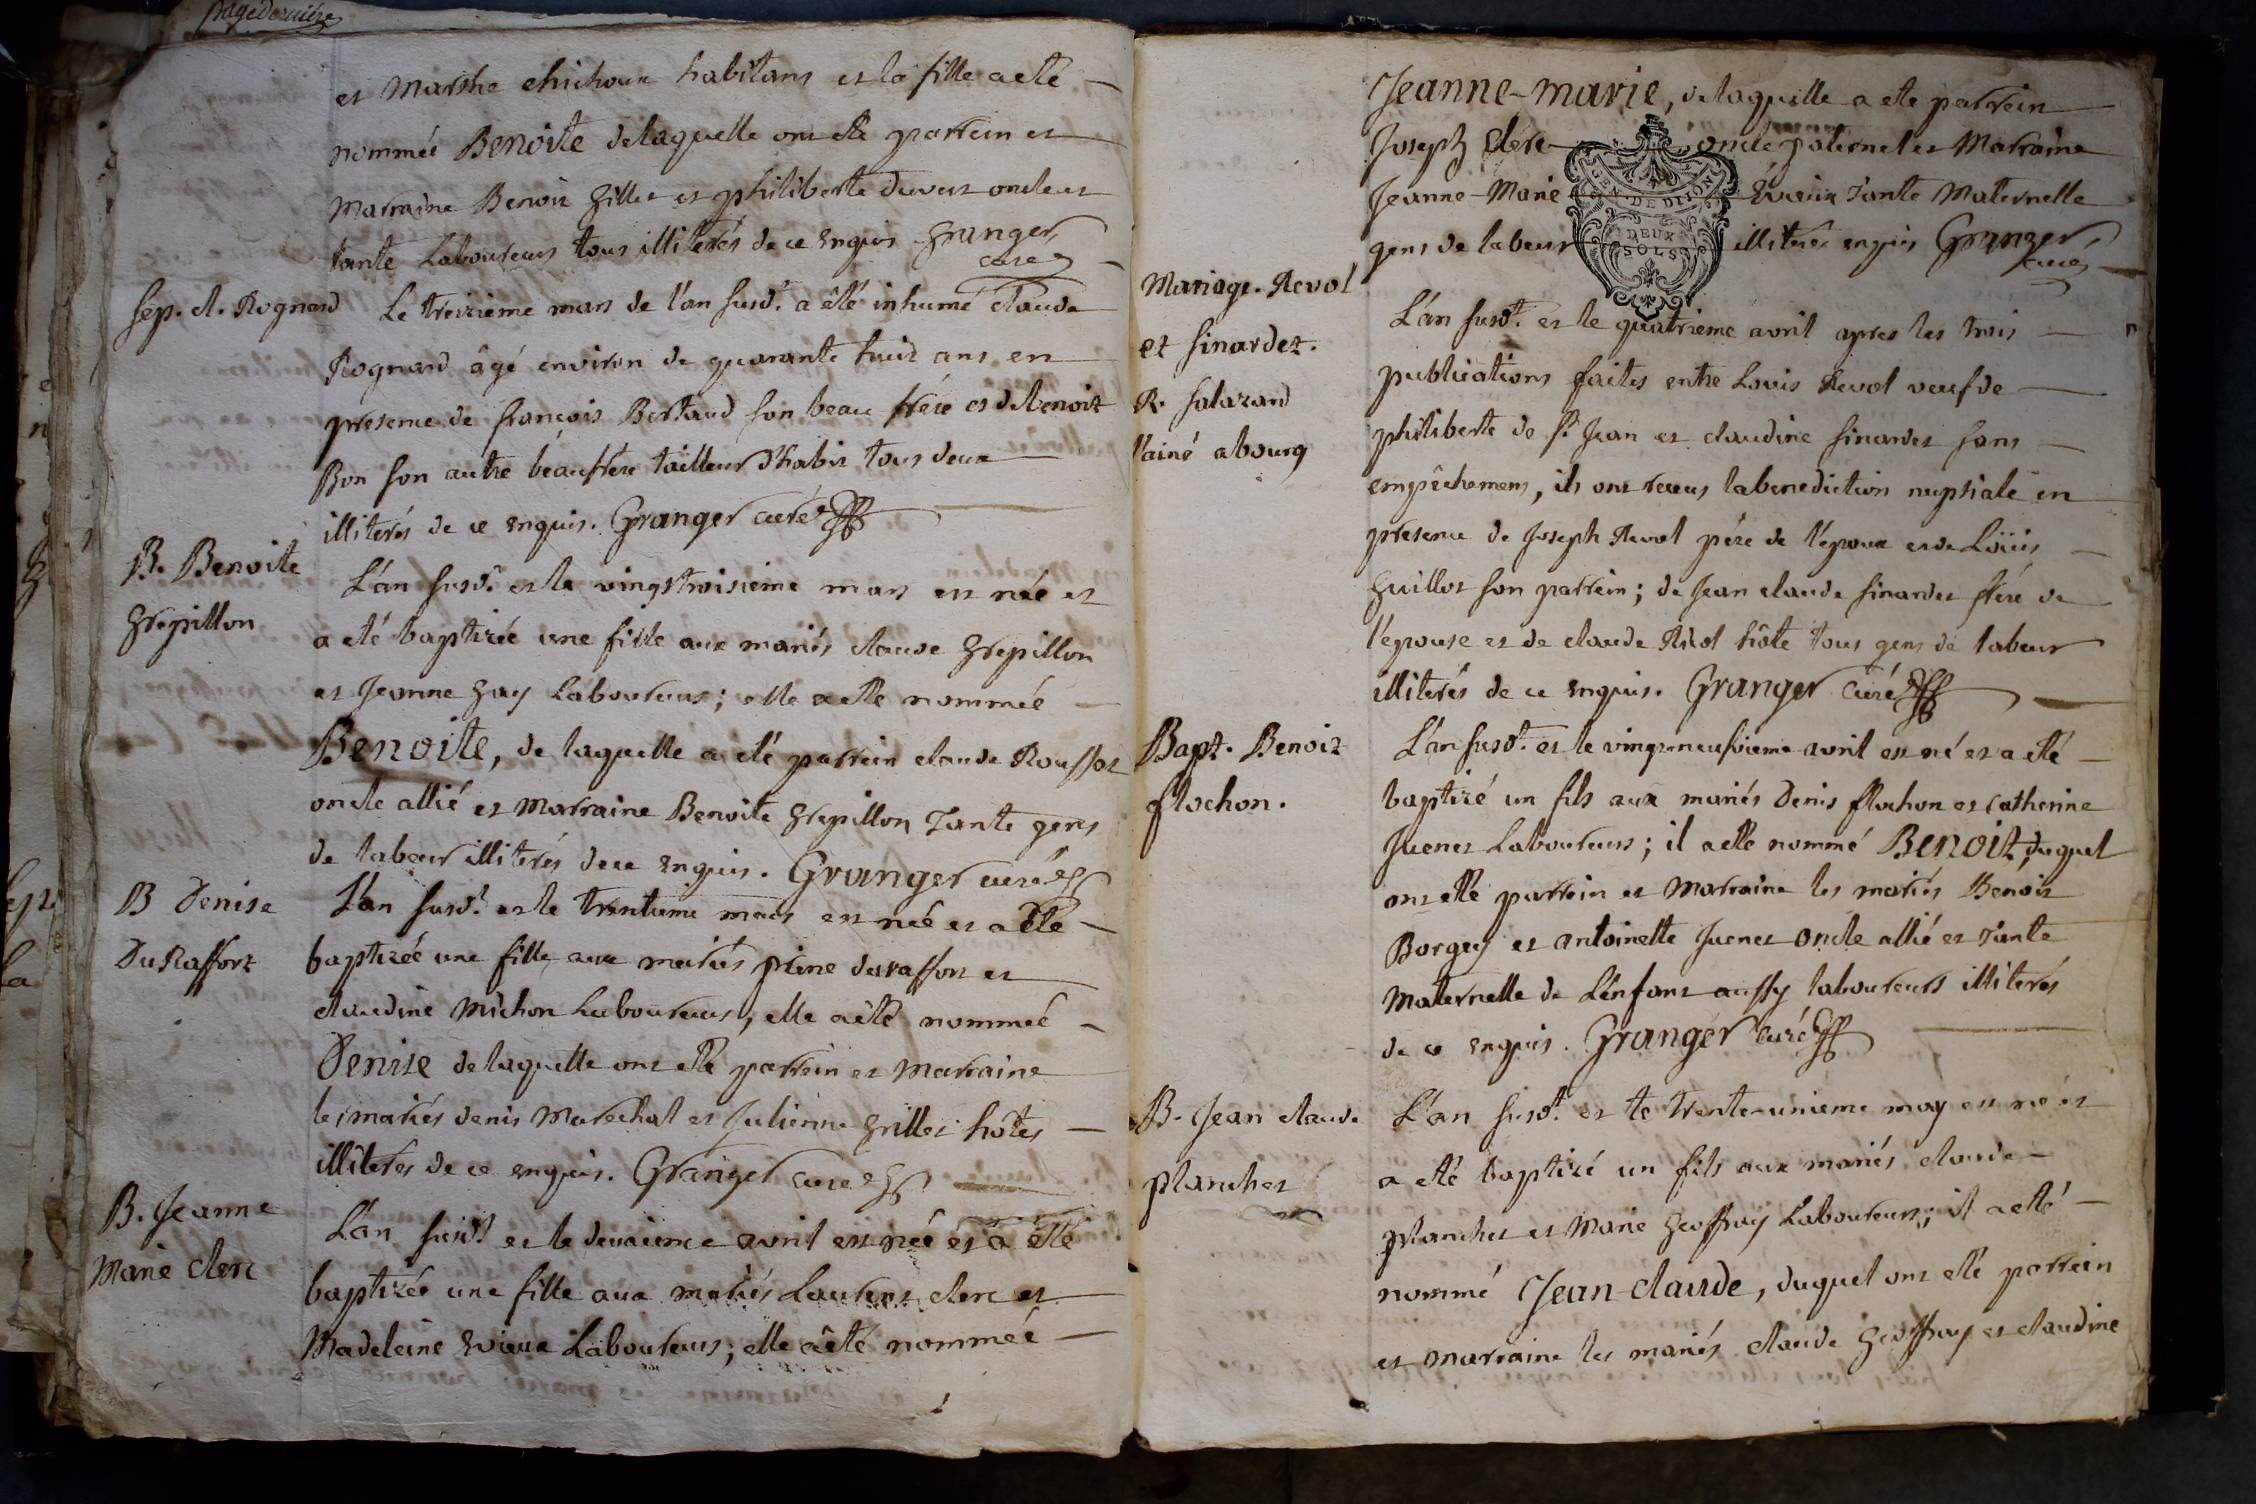 page dernière
et Marthe chichoux habitans et la fille a eté
nommée Benoite de laquelle ont eté parrein et
Marraine Benoit Gillet et philiberte duvert oncle et
tante Laboureurs tous illiterés de ce enquis Granger
curé
sep. cl. Rognard
Le treizieme mars de l'an susd.t a été inhumé claude
Rognard âgé environ de quarante huit ans en
presence de françois Bertaud son beau frére et de benoit
Bon son autre béaufrére tailleur d'habit tous deux
illiterés de ce enquis. Granger curé
B. Benoite
Grepillon
L'an susd.t et le vingttroisieme mars est née et
a eté baptizée une fille aux mariés claude Grepillon
et Jeanne Gay Laboureurs; elle a eté nommée
Benoite, de laquelle a eté parrein claude Roussot
oncle allié et Marraine Benoite Grepillon Tante gens
de labeur illiterés de ce enquis. Granger curé
B Denise
DuRaffort
L'an susd.t et le trentieme mars est née et a eté
baptizée une fille aux mariés pierre duraffort et
claudine Michon Laboureurs, elle a été nommée
Denise de laquelle ont eté parrein et Marraine
les mariés denis Marechal et Julienne Grillet hôtes
illiterés de ce enquis. Granger curé
B. Jeanne
Marie clerc
L'an susd.t et le deuxieme avril est née et a été
baptizée une fille aux mariés Laurent clerc et
Madeleine Evieux Laboureurs; elle a été nommée
Jeanne-marie, de laquelle a ete parrein
Joseph Clerc oncle paternel et Marraine
Jeanne-Marie Evieux Tante Maternelle
gens de labeur illiterés enquis Granger
curé
GEN. DE DIJON
DEUX
SOLS
Mariage. Revol
et sinardet.
R. salazard
l'ainé a bourg
L'an susd.t et le quatrieme avril apres les trois
publications faites entre Louis Revol veuf de
philiberte de s.t Jean et claudine sinardet sans
empêchement, ils ont receus la benediction nuptiale en
presence de Joseph Revol pére de l'epoux et de Loüis
Guillot son parrein; de Jean claude sinardet frére de
l'epouse et de claude Revol hôte tous gens de labeur
illiterés de ce enquis. Granger curé
Bapt. Benoit
flochon.
L'an susd.t et le vingt-neufvieme avril est né et a eté
baptizé un fils aux mariés Denis flochon et Catherine
Juenet Laboureurs; il a eté nommé Benoit, duquel
ont eté parrein et Marraine les mariés Benoit
Borgey et antoinette Juenet Oncle allié et Tante
Maternelle de L'enfant aussy laboureurs illiterés
de ce enquis. Granger curé
B. Jean claude
planchet
L'an susd.t et le trente-unieme may est né et
a eté baptizé un fils aux mariés claude
planchet et Marie Geoffray Laboureurs; il a eté
nommé Jean-claude, duquel ont eté parrein
et marraine les mariés claude Geoffray et claudine